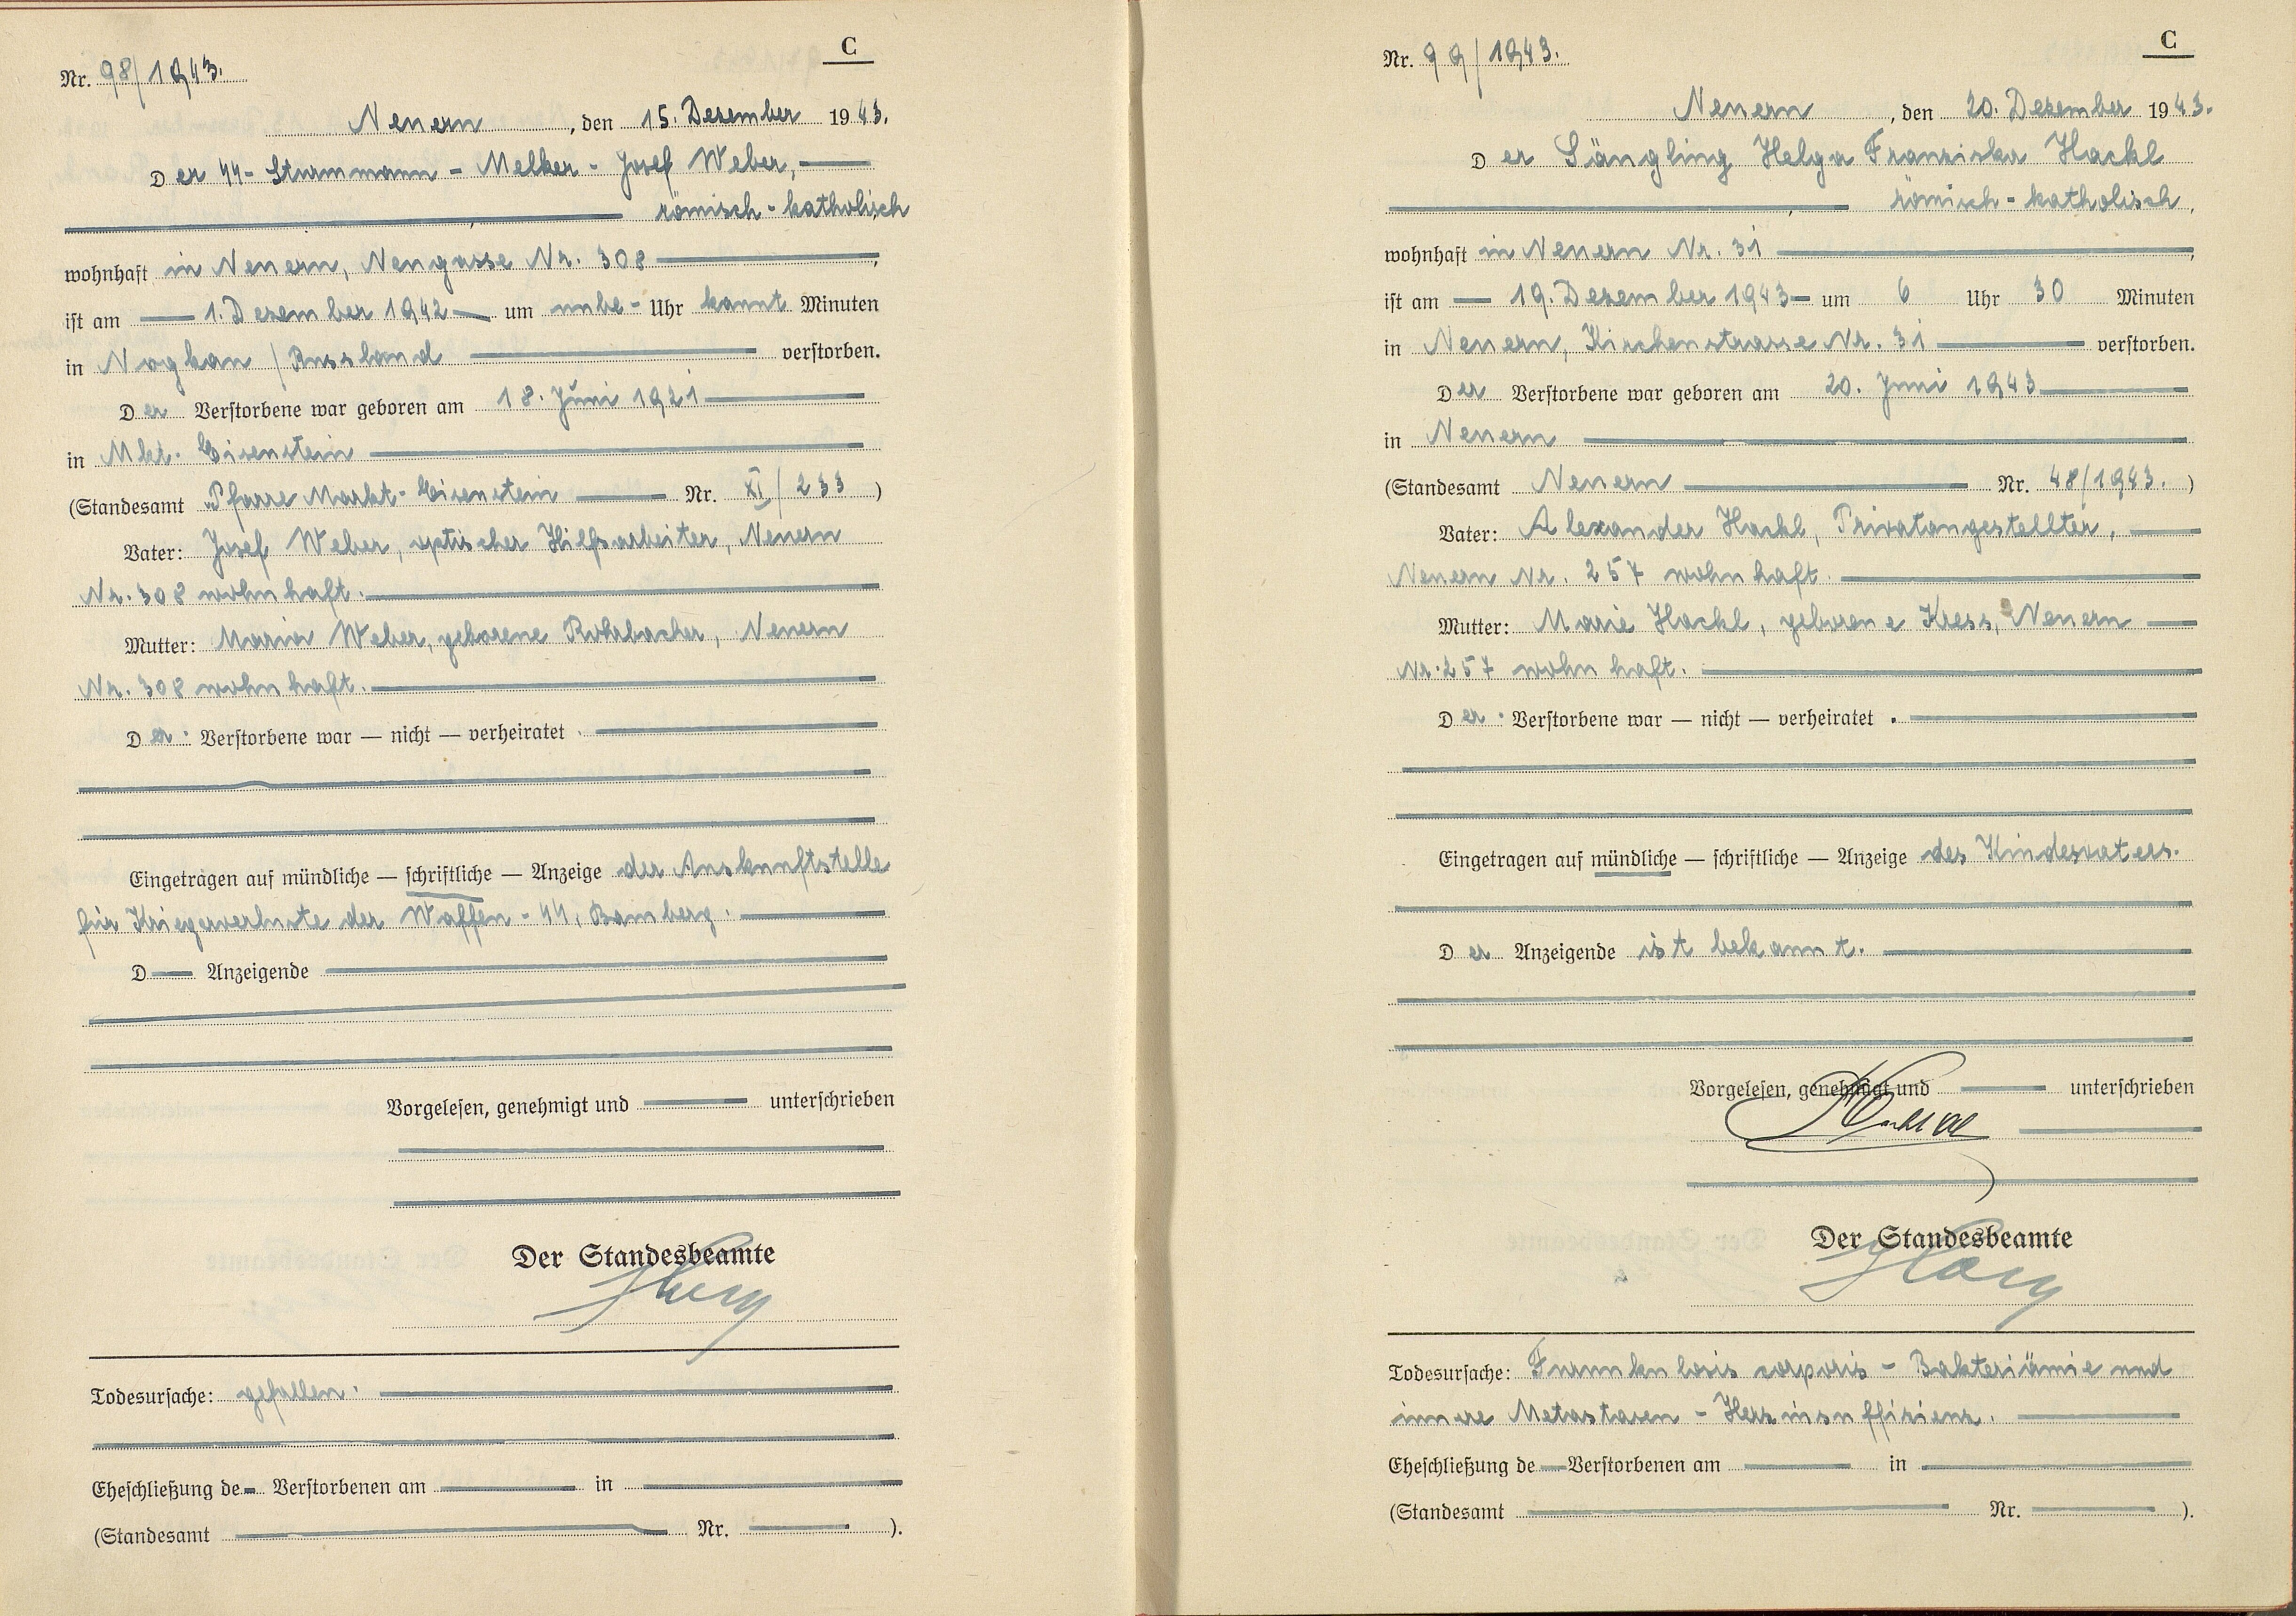 C
Nr. 98/1943.
Neuern, den 15. Dezember 1943.
Der SS-Sturmmann - Melker - Josef Weber,
römisch-katholisch
wohnhaft in Neuern, Neugasse Nr. 308
ist am 1. Dezember 1942 um unbe- Uhr kannt Minuten
in Nogkau / Russland verstorben.
Der Verstorbene war geboren am 18. Juni 1921
in Mkt. Eisenstein
(Standesamt Pfarre Markt-Eisenstein Nr. XI/233)
Vater: Josef Weber, optischer Hilfsarbeiter, Neuern
Nr. 308 wohnhaft.
Mutter: Maria Weber, geborene Rohrbacher, Neuern
Nr. 308 wohnhaft.
Der Verstorbene war — nicht — verheiratet.
Eingetragen auf mündliche — schriftliche — Anzeige der Auskunftstelle
für Kriegerverluste der Waffen-SS, Bamberg.
D Anzeigende
Vorgelesen, genehmigt und unterschrieben
Der Standesbeamte
Todesursache: gefallen.
Eheschließung de Verstorbenen am in
(Standesamt Nr. ).
C
Nr. 99/1943.
Neuern, den 20. Dezember 1943.
Der Säugling Helga Franziska Hackl
römisch-katholisch,
wohnhaft in Neuern Nr. 31
ist am 19. Dezember 1943 um 6 Uhr 30 Minuten
in Neuern, Kirchenstrasse Nr. 31 verstorben.
Der Verstorbene war geboren am 20. Juni 1943
in Neuern
(Standesamt Neuern Nr. 48/1943.)
Vater: Alexander Hackl, Privatangestellter,
Neuern Nr. 257 wohnhaft.
Mutter: Marie Hackl, geborene Kress, Neuern
Nr. 257 wohnhaft.
Der Verstorbene war — nicht — verheiratet.
Eingetragen auf mündliche — schriftliche — Anzeige des Kindesvaters.
Der Anzeigende ist bekannt.
Vorgelesen, genehmigt und unterschrieben
Der Standesbeamte
Todesursache: Furunkulosis corporis - Bakteriämie und
innere Metastasen - Herzinsuffizienz.
Eheschließung de Verstorbenen am in
(Standesamt Nr. ).